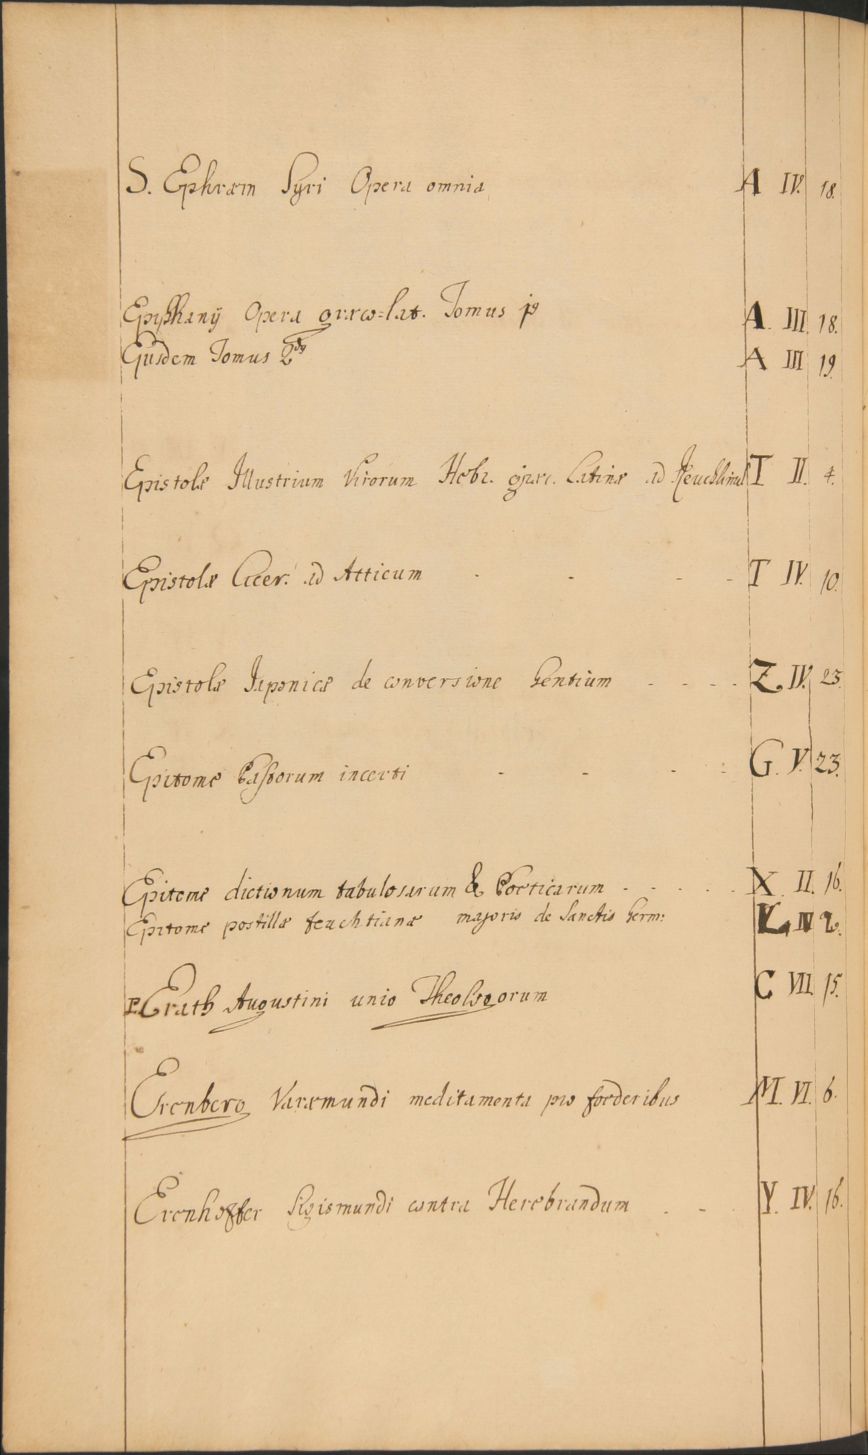 S. Ephræm Syri Opera omnia A IV. 18.
Epiphanij Opera græco=lat. Tomus j9 A. III 18.
Ejusdem Tomus 2dus A III 19
Epistolæ Illustrium Virorum Hebr. græc. Latinæ ad Reuchlinum T II. 4.
Epistolæ Cicer. ad Atticum - - - - T IV. 10.
Epistolæ Japonicæ de conversione Gentium - - - - Z IV. 23.
Epitome Pastorum incerti - - - - G. V. 23.
Epitome dictionum fabulosarum & Poeticarum - - - - - X II. 16.
Epitome postillæ feuchtianæ majoris de Sanctis Germ: IV 2.
P. Erath Augustini unio Theologorum C VII. 15.
Erenberg Varæmundi meditamenta pro foederibus M. VI. 6.
Erenhoffer Sigismundi contra Herebrandum - - Y. IV. 16.